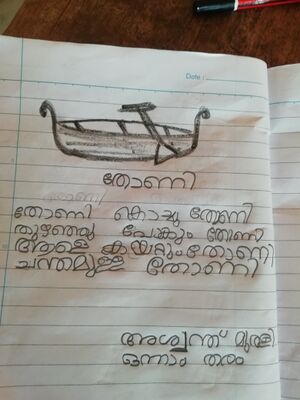 Date :
തോണി
തോണി
തോണി കൊച്ചു തോണി
തുഴഞ്ഞു പോകും തോണി
ആളെ കയറ്റും തോണി
ചന്തമുള്ള തോണി
അശ്വന്ത് മുരളി
ഒന്നാം തരം